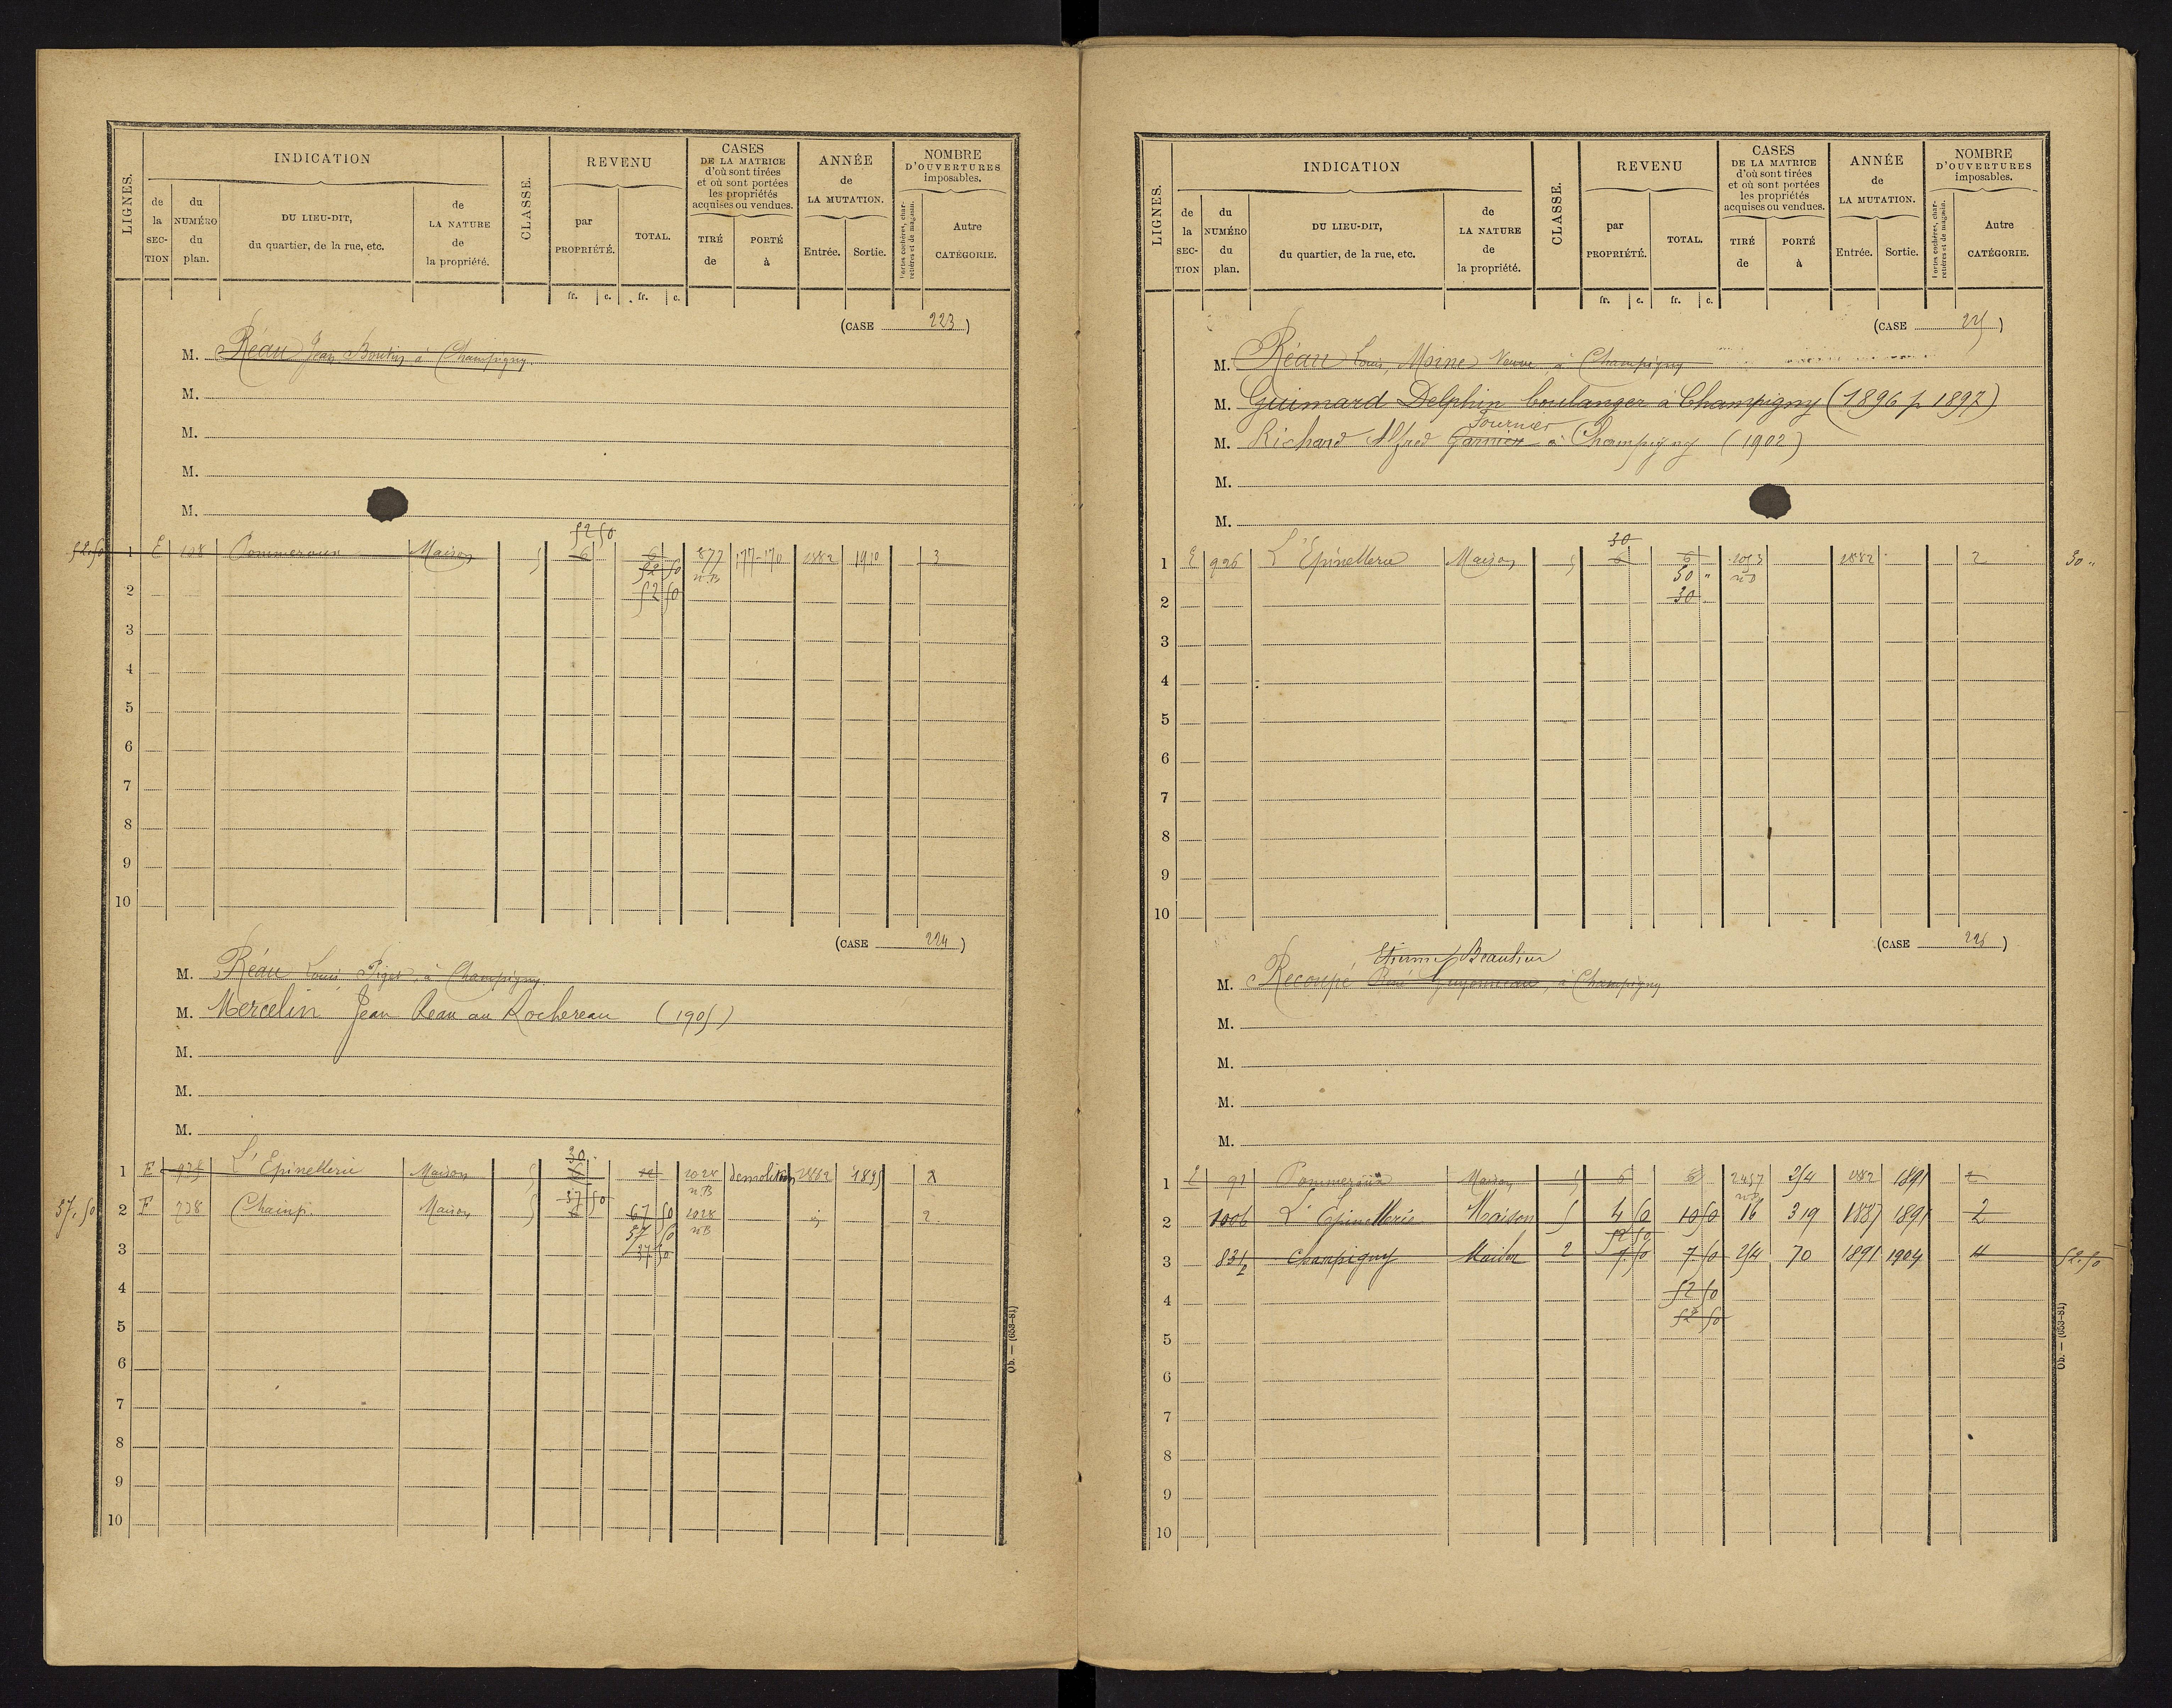 LIGNES.
INDICATION
de la SECTION
du NUMÉRO du plan.
DU LIEU-DIT, du quartier, de la rue, etc.
de LA NATURE de la propriété.
CLASSE.
REVENU
par PROPRIÉTÉ.
TOTAL.
fr. c. fr. c.
CASES DE LA MATRICE d'où sont tirées et où sont portées les propriétés acquises ou vendues.
TIRÉ de
PORTÉ à
ANNÉE de LA MUTATION.
Entrée. Sortie.
NOMBRE D'OUVERTURES imposables.
Portes cochères, charretières et de magasin.
Autre CATÉGORIE.
(CASE 223)
M. Réau Jean Boutin, à Champigny.
M.
M.
M.
M.
52 50
52.50 1 E 108 Pommeraux Maison 5 6 6 877 177-170 1882 1910 3
52 50 n.B
2 52 50
3
4
5
6
7
8
9
10
(CASE 224)
M. Réau Louis Piget, à Champigny.
M. Mercelin Jean Reau au Rochereau (1905)
M.
M.
M.
30
1 E 935 L'Epinetterie Maison 5 6 12 1028 demolition 1882 1895 2
n.B
37 50
37.50 2 F 738 Champ. Maison 5 6 67 50 1028 2
37 50 n.B
3 37 50
4
5
6
7
8
9
10
Ob. — (653-81)
LIGNES.
INDICATION
de la SECTION
du NUMÉRO du plan.
DU LIEU-DIT, du quartier, de la rue, etc.
de LA NATURE de la propriété.
CLASSE.
REVENU
par PROPRIÉTÉ.
TOTAL.
fr. c. fr. c.
CASES DE LA MATRICE d'où sont tirées et où sont portées les propriétés acquises ou vendues.
TIRÉ de
PORTÉ à
ANNÉE de LA MUTATION.
Entrée. Sortie.
NOMBRE D'OUVERTURES imposables.
Portes cochères, charretières et de magasin.
Autre CATÉGORIE.
(CASE 225)
M. Réau Louis, Moine Veuve, à Champigny
M. Guimard Delphin boulanger à Champigny (1896 p 1897)
Fournier
M. Richard Alfred Garnier à Champigny (1902)
M.
M.
30
1 E 926 L'Epinetterie Maison 5 6 6 1053 1882 2 30 "
30 " n.B
2 30
3
4
5
6
7
8
9
10
(CASE 226)
Etienne Beaulieu
M. Recoupé René Guyonneau, à Champigny
M.
M.
M.
M.
1 E 91 Pommeraux Maison 5 6 6 2457 254 1882 1891 2
n.B
2 1006 L'Epinetterie Maison 5 4 50 10 50 16 319 1887 1891 2
52 50
3 831p Champigny Maison 2 7 50 7 50 254 70 1891 1904 4 52.50
4 52 50
52 50
5
6
7
8
9
10
Ob. — (653-81)